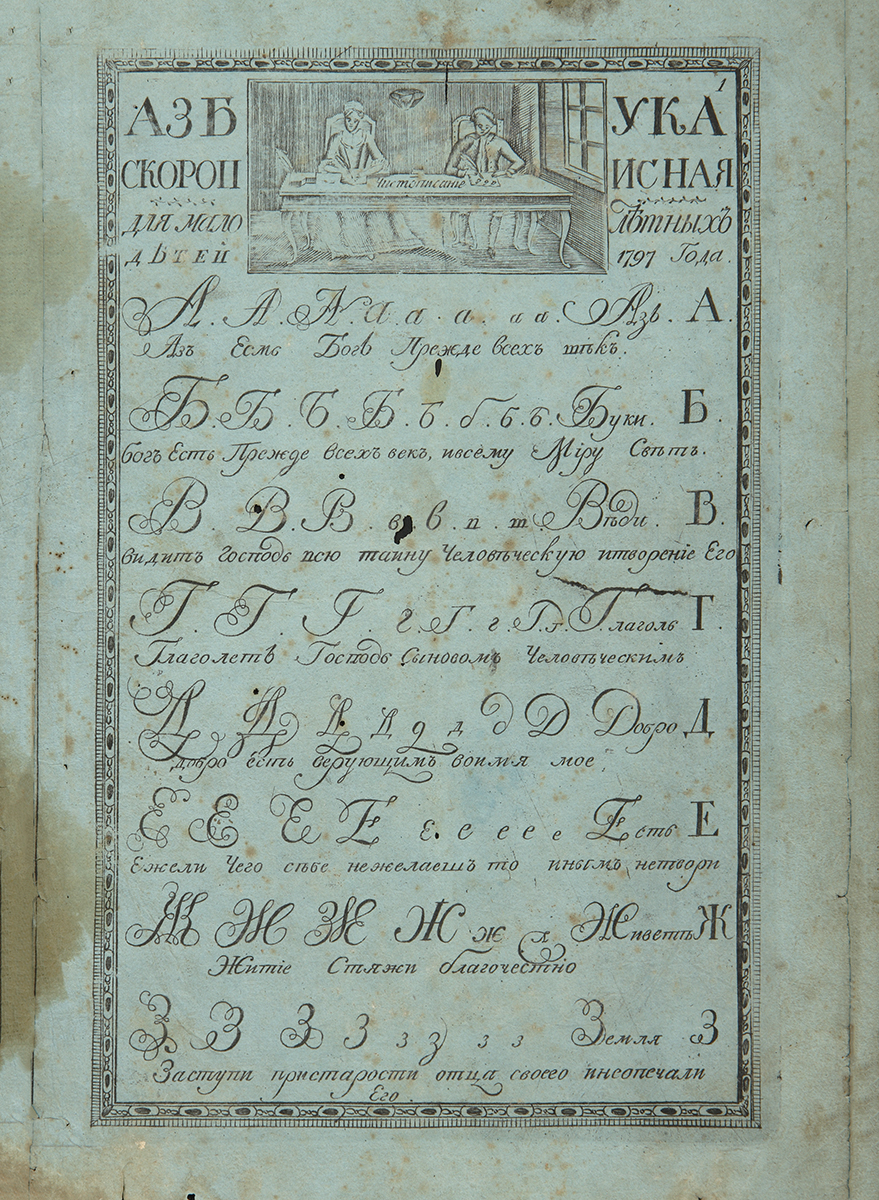 1
АЗБ УКА
СКОРОП ИСНАЯ
для мало лѣтныхъ
дѣтей 1797 Года.
Чистописание
А. А. А. а. а. а. а а. Азъ. А.
Азъ Есмь Богъ Прежде всехъ вѣкъ.
Б. Б. Б. Б. б. б. б. б. Буки. Б.
богъ Есть Прежде всехъ век, ивсему Міру Свѣтъ.
В. В. В. в. в. п. т. Вѣди. В.
видитъ Господь всю тайну Человѣческую итвореніе Его
Г. Г. Г. г. Г. г. Г. г. Глаголь Г.
Глаголетъ Господь Сыновомъ Человѣческимъ
Д Д Д Д д д д D Добро Д
добро есть верующимъ воимя мое
Е Е Е Е е. е е е е Есть Е
Ежели Чего сѣбе нежелаешъ то инымъ нетвори
Ж Ж Ж Ж ж ж Живетъ Ж
Житіе Стяжи благочестно
З З З З з з з з Земля З
Заступи пристарости отца своего инсопечали
Его.